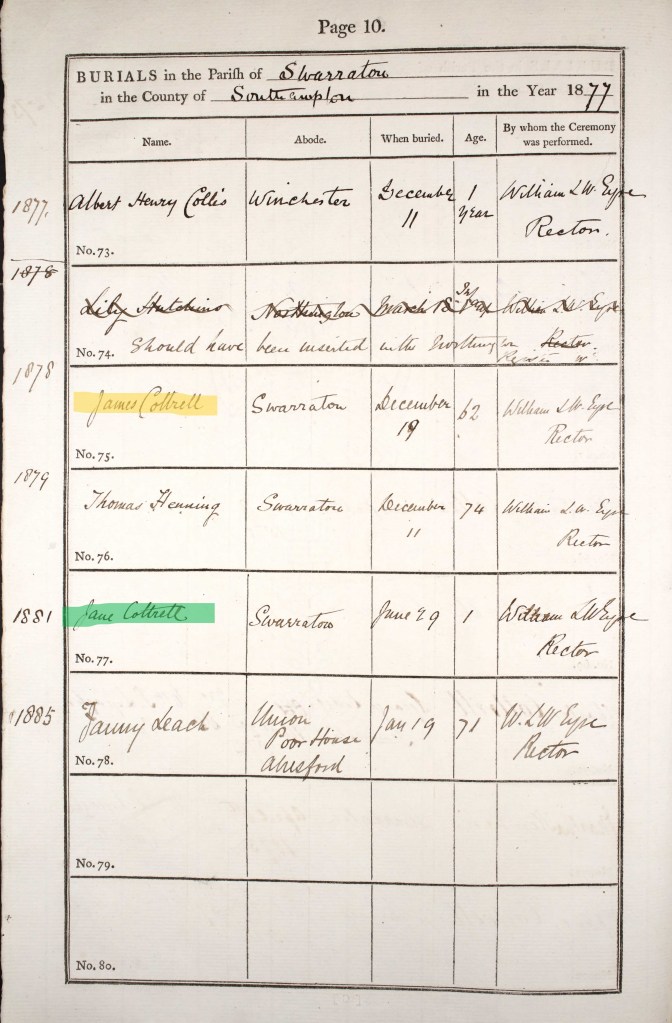 Page 10.
BURIALS in the Parish of Swarraton
in the County of Southampton in the Year 1877
Name. Abode. When buried. Age. By whom the Ceremony was performed.
1877. Albert Henry Collis Winchester December 11 1 Year William L W. Eyre Rector.
No. 73.
1878
Lily Hutchins Northington March 18 Infant William L. W. Eyre Rector
No. 74. Should have been inserted in the Northington Register
1878
James Cottrell Swarraton December 19 62 William L W. Eyre Rector
No. 75.
1879
Thomas Henning Swarraton December 11 74 William L. W. Eyre Rector
No. 76.
1881 Jane Cottrell Swarraton June 29 1 William L W Eyre Rector
No. 77.
1885 Fanny Leach Union Poor House Alresford Jan 19 71 W. L W Eyre Rector
No. 78.
No. 79.
No. 80.